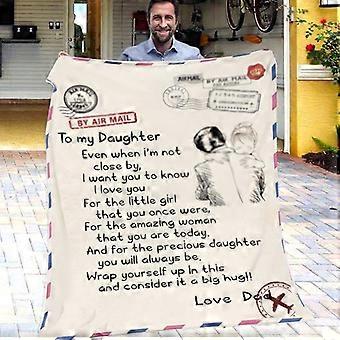 AIR MAIL
AIRMAIL
BY AIR MAIL
BY AIR MAIL
To my Daughter
Even when i'm not
close by,
I want you to know
I love you
For the little girl
that you once were,
For the amazing woman
that you are today,
And for the precious daughter
you will always be,
Wrap yourself up In this
and consider it a big hug!!
Love Dad